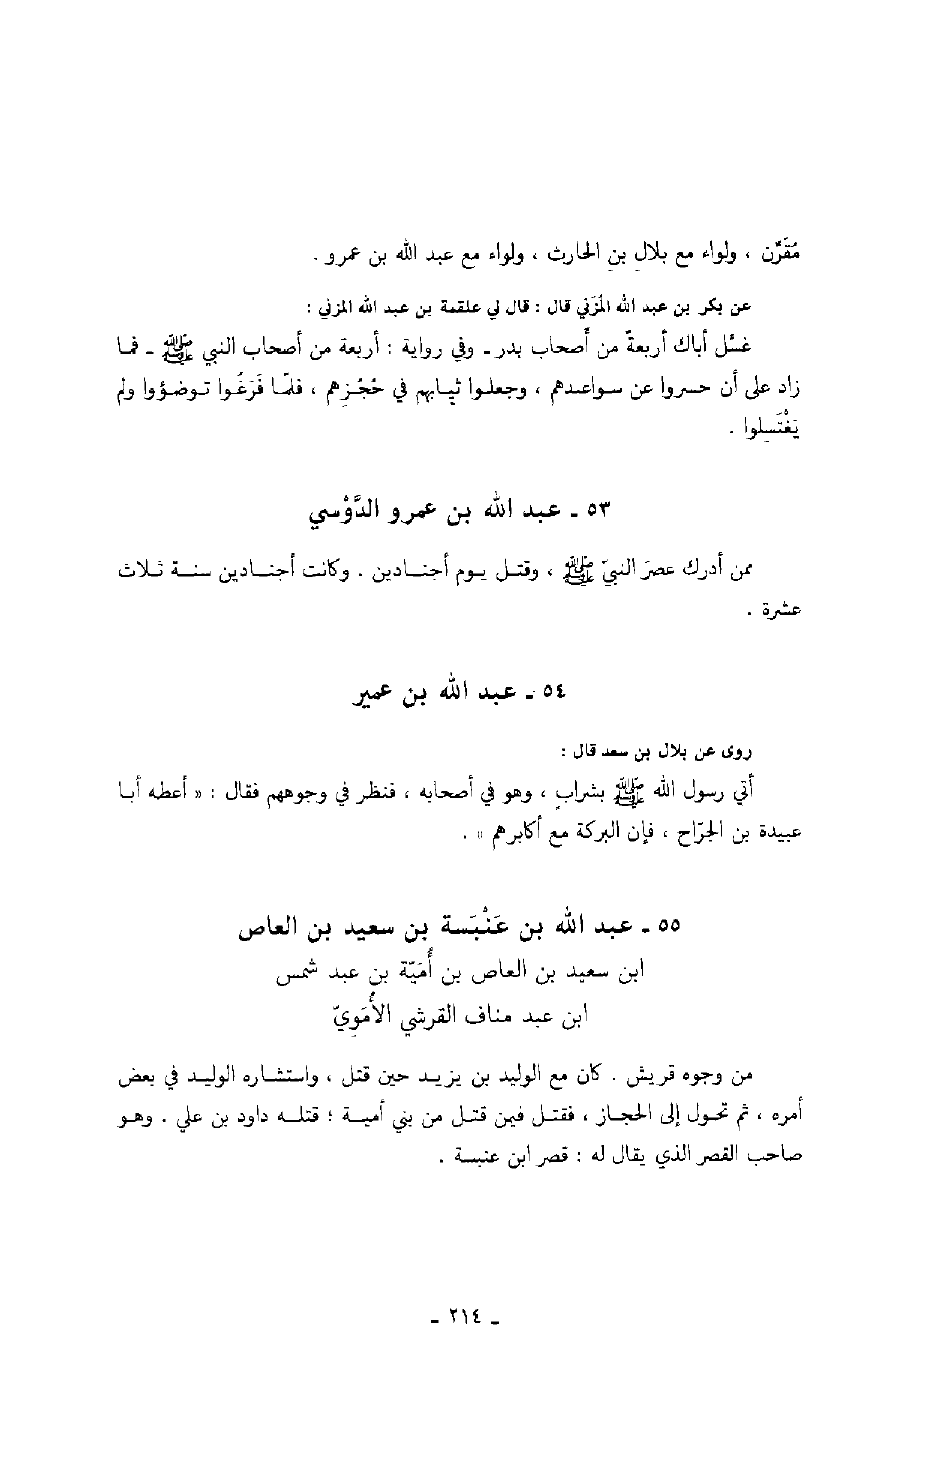 مُقَرِّن ، ولواء مع بلالِ بنِ الحارث ، ولواء مع عبد الله بن عمرو .
عن بكر بن عبد الله المُزَني قال : قال لي علقمة بن عبد الله المزني :
غسَّل أباك أربعةٌ من أصحاب بدر ـ وفي رواية : أربعة من أصحاب النبي ﷺ ـ فما
زاد على أن حسروا عن سواعدهم ، وجعلوا ثيابهم في حُجَزِهم ، فلمّا فَرَغُوا توضؤوا ولم
يَغْتَسِلوا .
٥٣ ـ عبد الله بن عمرو الدَّوْسي
ممن أدرك عصرَ النبيّ ﷺ ، وقتل يوم أجنادين . وكانت أجنادين سنة ثلاث
عشرة .
٥٤ ـ عبد الله بن عمير
روى عن بلال بن سعد قال :
أتي رسول الله ﷺ بشرابٍ ، وهو في أصحابه ، فنظر في وجوههم فقال : « أعطه أبا
عبيدة بن الجرّاح ، فإن البركة مع أكابرهم » .
٥٥ ـ عبد الله بن عَنْبَسة بن سعيد بن العاص
ابن سعيد بن العاص بن أُمَيّة بن عبد شمس
ابن عبد مناف القرشي الأُمَوِيّ
من وجوه قريش . كان مع الوليد بن يزيد حين قتل ، واستشاره الوليد في بعض
أمره ، ثم تحول إلى الحجاز ، فقتل فين قتل من بني أمية ؛ قتله داود بن علي . وهو
صاحب القصر الذي يقال له : قصر ابن عنبسة .
ـ ٢١٤ ـ